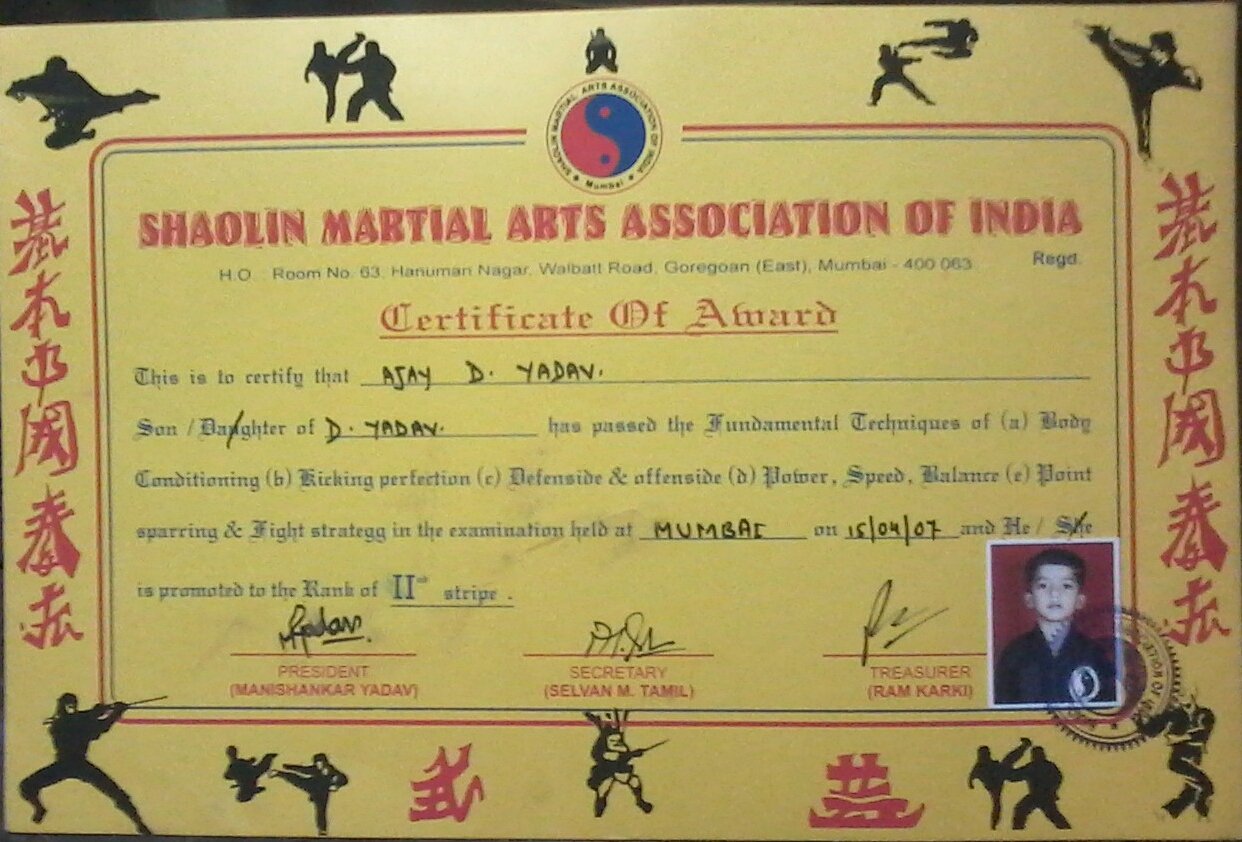 SHAOLIN MARTIAL ARTS ASSOCIATION OF INDIA
Mumbai
SHAOLIN MARTIAL ARTS ASSOCIATION OF INDIA
H.O. Room No. 63, Hanuman Nagar, Walbatt Road, Goregoan (East), Mumbai - 400 063 Regd.
Certificate Of Award
This is to certify that AJAY D. YADAV.
Son / Daughter of D. YADAV. has passed the Fundamental Techniques of (a) Body
Conditioning (b) Kicking perfection (c) Defenside & offenside (d) Power, Speed, Balance (e) Point
sparring & Fight strategg in the examination held at MUMBAI on 15/04/07 and He / She
is promoted to the Rank of II nd stripe .
PRESIDENT
(MANISHANKAR YADAV)
SECRETARY
(SELVAN M. TAMIL)
TREASURER
(RAM KARKI)